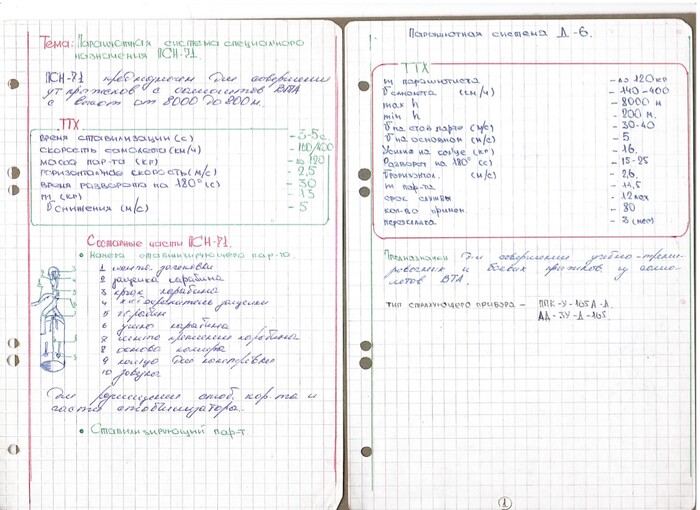 Тема: Парашютная система специального
назначения ПСН-71.
ПСН-71 предназначен для совершения
уч. прыжков с самолетов ВТА
с высот от 8000 до 200 м.
ТТХ
время стабилизации (с) - 3-5 с.
скорость самолета (км/ч) - 140/400
масса пар-та (кг) - до 120
горизонтальная скорость (м/с) - 2,5
время разворота на 180° (с) - 30
m (кг) - 15
V снижения (м/с) - 5
Составные части ПСН-71.
• камера стабилизирующего пар-та
1 лента зачековки
2 защелка карабина
3 крюк карабина
4 предохранитель защелки
5 карабин
6 ушко карабина
7 лента крепления карабина
8 основа камеры
9 кольцо для контровки
10 завязка
Для размещения стаб. пар-та и
части стабилизатора.
• Стабилизирующий пар-т.
Парашютная система Д-6.
ТТХ
m парашютиста - до 120 кг
V самолета (км/ч) - 140-400
max h - 8000 м
min h - 200 м.
V на стаб парте (м/с) - 30-40
V на основном (м/с) - 5
Усилие на кольце (кг) - 16.
Разворот на 180° (с) - 15-25
V горизонтал. (м/с) - 2,6.
m пар-та - 11,5
срок службы - 12 лет
кол-во примен. - 80
переукладка - 3 (мес)
Предназначен для совершения учебно-трени-
ровочных и боевых прыжков из само-
летов ВТА.
тип страхующего прибора - ППК-У-165А-Д.
АД-3У-Д-165.
1